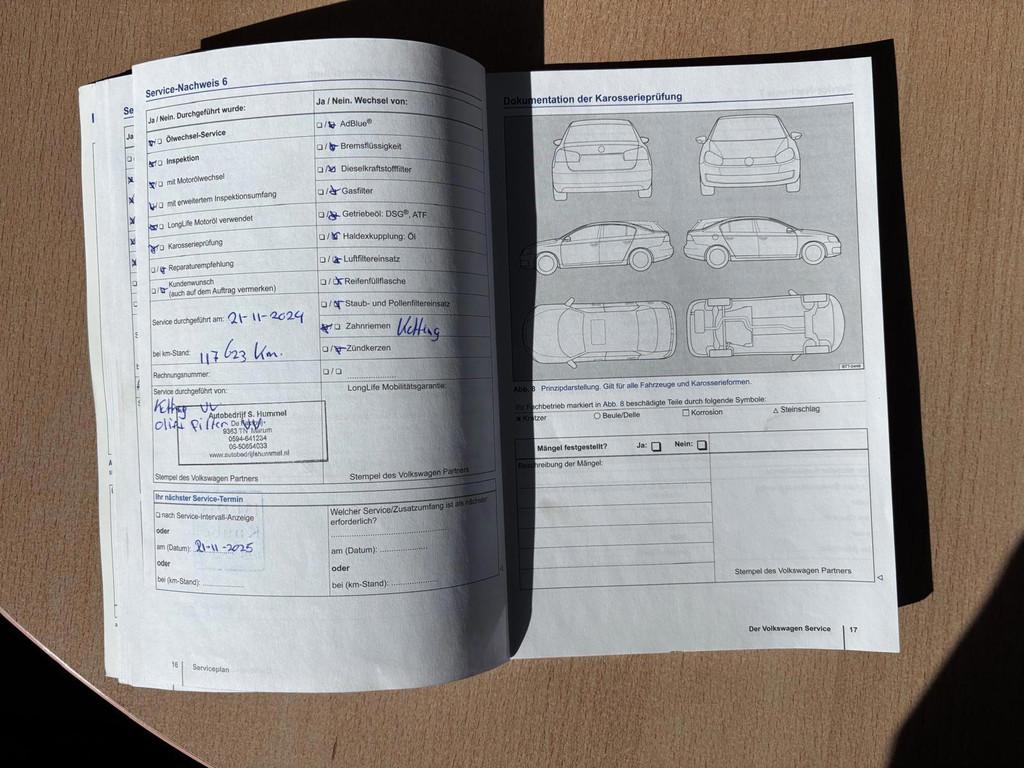 Service-Nachweis 6
Ja / Nein. Durchgeführt wurde:
Ölwechsel-Service
Inspektion
mit Motorölwechsel
mit erweitertem Inspektionsumfang
LongLife Motoröl verwendet
Karosserieprüfung
Reparaturempfehlung
Kundenwunsch
(auch auf dem Auftrag vermerken)
Service durchgeführt am: 21-11-2024
bei km-Stand: 117623 Km.
Rechnungsnummer:
Service durchgeführt von:
Ketting VV
Olie Filter VV
Autobedrijf S. Hummel
9363 TN Marum
0594-641234
06-50654033
www.autobedrijfshummel.nl
Stempel des Volkswagen Partners
Ja / Nein. Wechsel von:
AdBlue®
Bremsflüssigkeit
Dieselkraftstofffilter
Gasfilter
Getriebeöl: DSG®, ATF
Haldexkupplung: Öl
Luftfiltereinsatz
Reifenfüllflasche
Staub- und Pollenfiltereinsatz
Zahnriemen Ketting
Zündkerzen
LongLife Mobilitätsgarantie:
Stempel des Volkswagen Partners
Ihr nächster Service-Termin
nach Service-Intervall-Anzeige
oder
am (Datum): 21-11-2025
oder
bei (km-Stand):
Welcher Service/Zusatzumfang ist als nächster
erforderlich?
am (Datum):
oder
bei (km-Stand):
16 Serviceplan
Dokumentation der Karosserieprüfung
Abb. 8 Prinzipdarstellung. Gilt für alle Fahrzeuge und Karosserieformen.
Ihr Fachbetrieb markiert in Abb. 8 beschädigte Teile durch folgende Symbole:
× Kratzer ○ Beule/Delle □ Korrosion △ Steinschlag
Mängel festgestellt? Ja: Nein:
Beschreibung der Mängel:
Stempel des Volkswagen Partners
Der Volkswagen Service 17